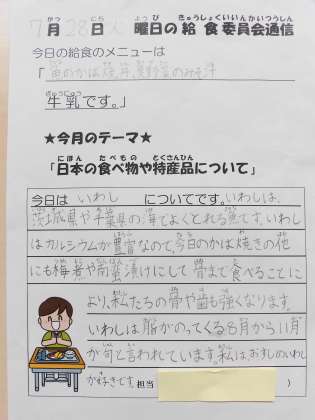 7月28日火曜日の給食委員会通信
今日の給食のメニューは
「魚のかば焼き丼、夏野菜のみそ汁
牛乳です。」
★今月のテーマ★
「日本の食べ物や特産品について」
今日は いわし についてです。いわしは、
茨城県や千葉県の海でよくとれる魚です。いわし
はカルシウムが豊富なので、今日のかば焼きの他
にも梅煮や南蛮漬けにして骨まで食べることに
より、私たちの骨や歯も強くなります。
いわしは脂がのってくる8月から11月
が旬と言われています。私は、おすしのいわし
が好きです。担当